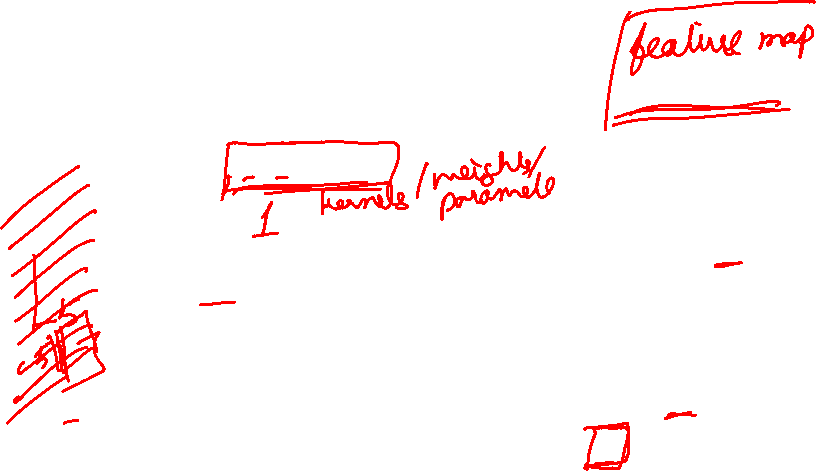 feature map
kernels / weights/
paramete
1
5
5